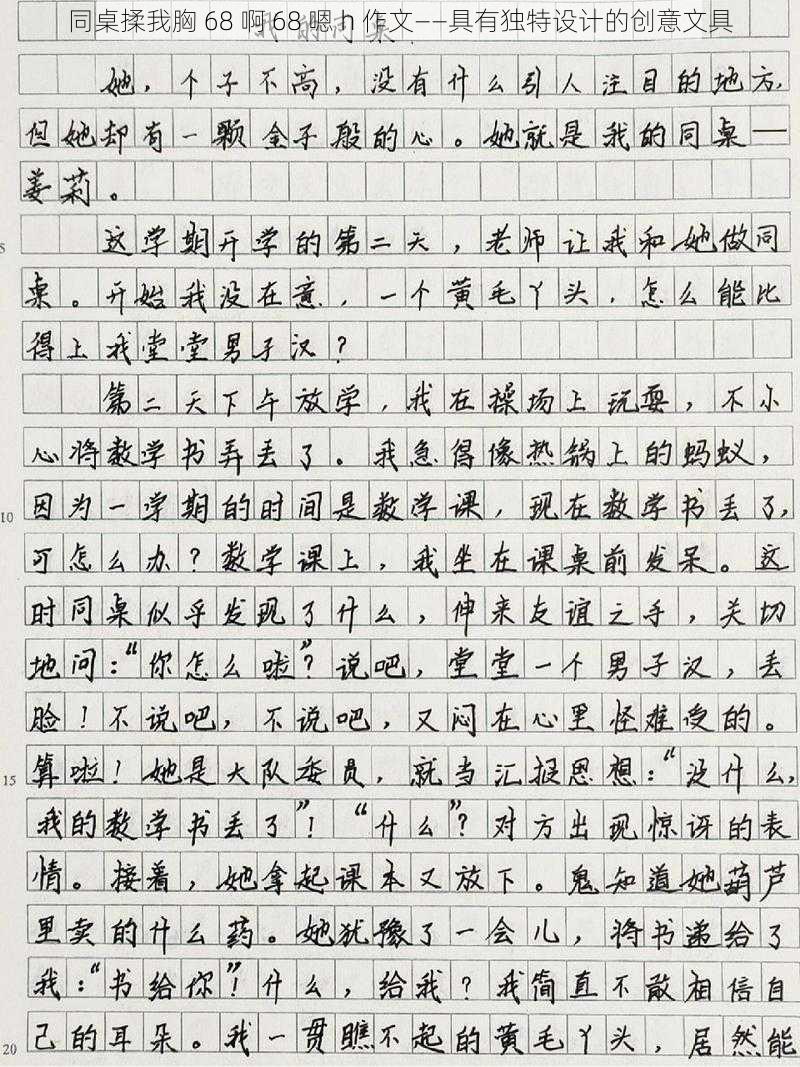 同桌揉我胸 68 啊 68 嗯 h 作文——具有独特设计的创意文具
我的同桌
她，个子不高，没有什么引人注目的地方，
但她却有一颗金子般的心。她就是我的同桌——
姜莉。
5 这学期开学的第二天，老师让我和她做同
桌。开始我没在意，一个黄毛丫头，怎么能比
得上我堂堂男子汉？
第二天下午放学，我在操场上玩耍，不小
心将数学书弄丢了。我急得像热锅上的蚂蚁，
10 因为一学期的时间是数学课，现在数学书丢了，
可怎么办？数学课上，我坐在课桌前发呆。这
时同桌似乎发现了什么，伸来友谊之手，关切
地问：“你怎么啦”？说吧，堂堂一个男子汉，丢
脸！不说吧，不说吧，又闷在心里怪难受的。
15 算啦！她是大队委员，就当汇报思想：“没什么，
我的数学书丢了”！“什么”？对方出现惊讶的表
情。接着，她拿起课本又放下。鬼知道她葫芦
里卖的什么药。她犹豫了一会儿，将书递给了
我：“书给你”！什么，给我？我简直不敢相信自
20 己的耳朵。我一贯瞧不起的黄毛丫头，居然能